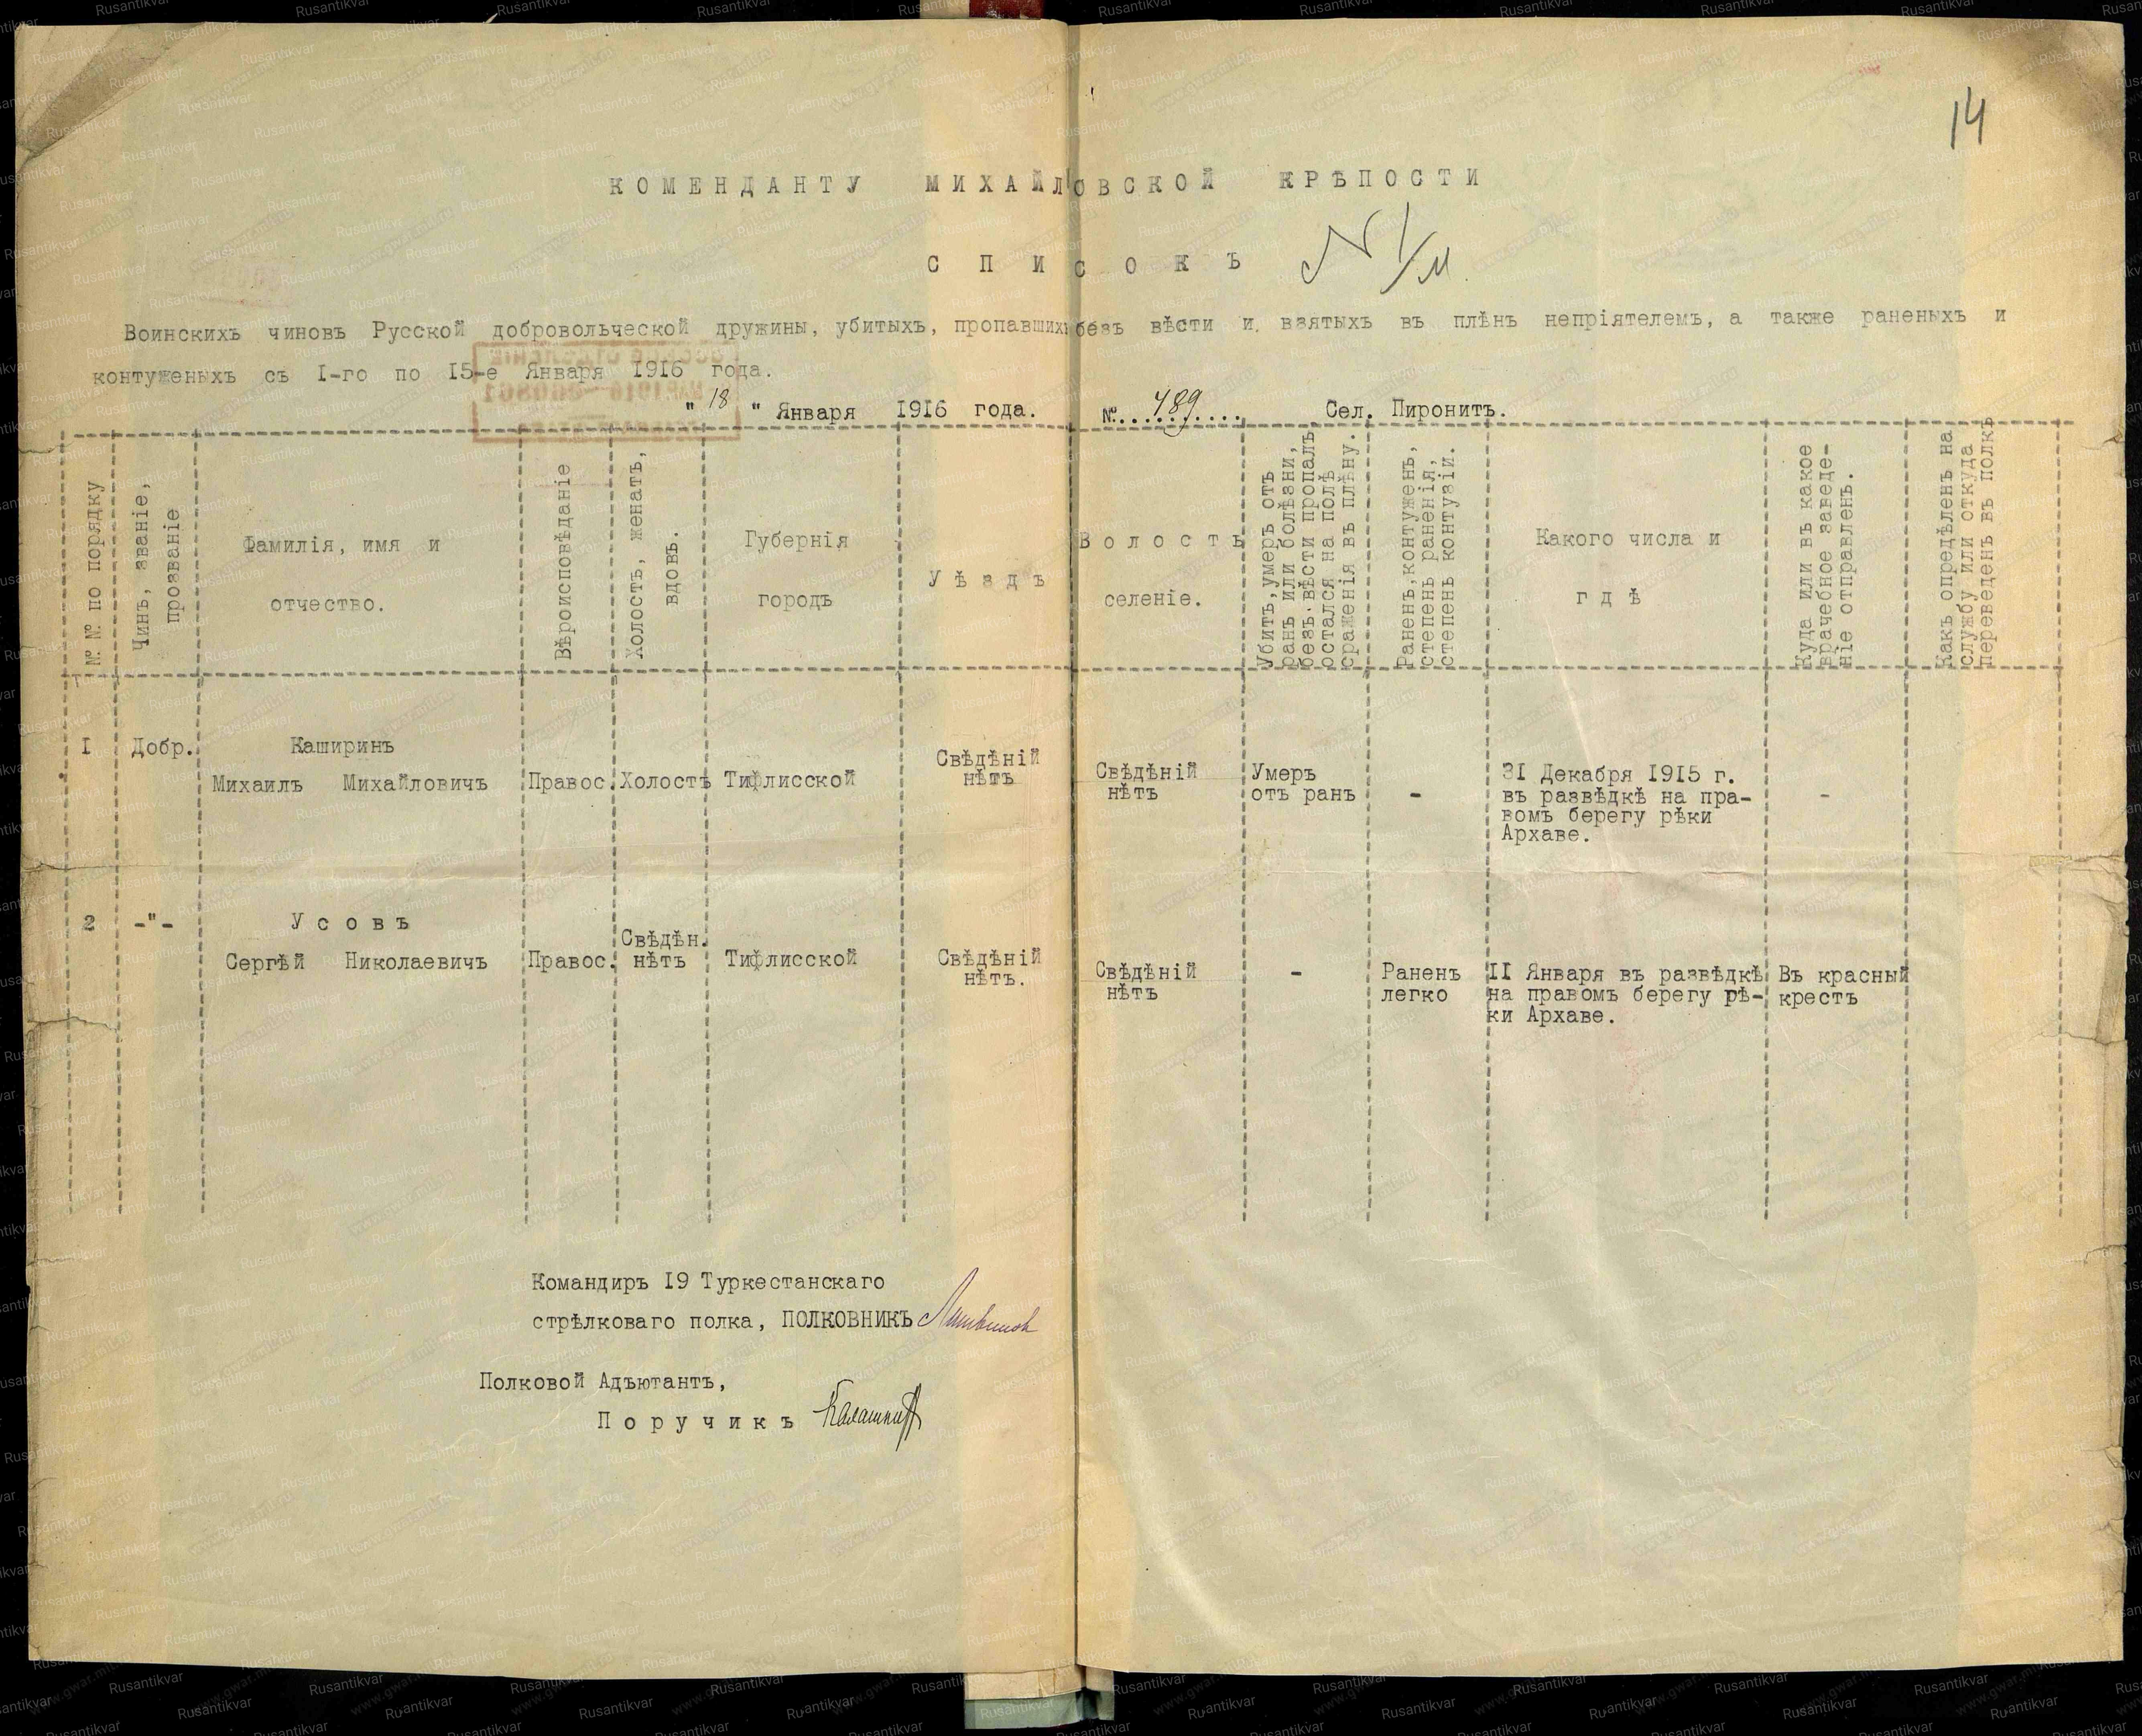 14
КОМЕНДАНТУ МИХАЙЛОВСКОЙ КРѢПОСТИ
СПИСОКЪ
Воинскихъ чиновъ Русской добровольческой дружины, убитыхъ, пропавшихъ безъ вѣсти и взятыхъ въ плѣнъ непріятелемъ, а также раненыхъ и
контуженыхъ съ I-го по I5-е Января I9I6 года.
"18" Января I9I6 года. №....489.... Сел. Пиронитъ.
№.№. по порядку
Чинъ, званіе,
прозваніе
Фамилія, имя и
отчество.
Вѣроисповѣданіе
Холостъ, женатъ,
вдовъ.
Губернія
городъ
Уѣздъ
Волость
селеніе.
Убитъ,умеръ отъ
ранъ или болѣзни,
безъ.вѣсти пропалъ
остался на полѣ
сраженія въ плѣну.
Раненъ,контуженъ,
степень раненія,
степень контузіи.
Какого числа и
гдѣ
Куда или въ какое
врачебное заведе-
ніе отправленъ.
Какъ опредѣленъ на
службу или откуда
переведенъ въ полкъ
I Добр. Каширинъ
Михаилъ Михайловичъ Правос. Холостъ Тифлисской
Свѣдѣній
нѣтъ
Свѣдѣній
нѣтъ
Умеръ
отъ ранъ
-
3I Декабря I9I5 г.
въ развѣдкѣ на пра-
вомъ берегу рѣки
Архаве.
-
2 -"- Усовъ
Сергѣй Николаевичъ Правос.
Свѣдѣн.
нѣтъ
Тифлисской
Свѣдѣній
нѣтъ.
Свѣдѣній
нѣтъ
-
Раненъ
легко
II Января въ развѣдкѣ
на правомъ берегу рѣ-
ки Архаве.
Въ красный
крестъ
Командиръ I9 Туркестанскаго
стрѣлковаго полка, ПОЛКОВНИКЪ Литвинов
Полковой Адъютантъ,
Поручикъ
Rusantikvar
www.gwar.mil.ru